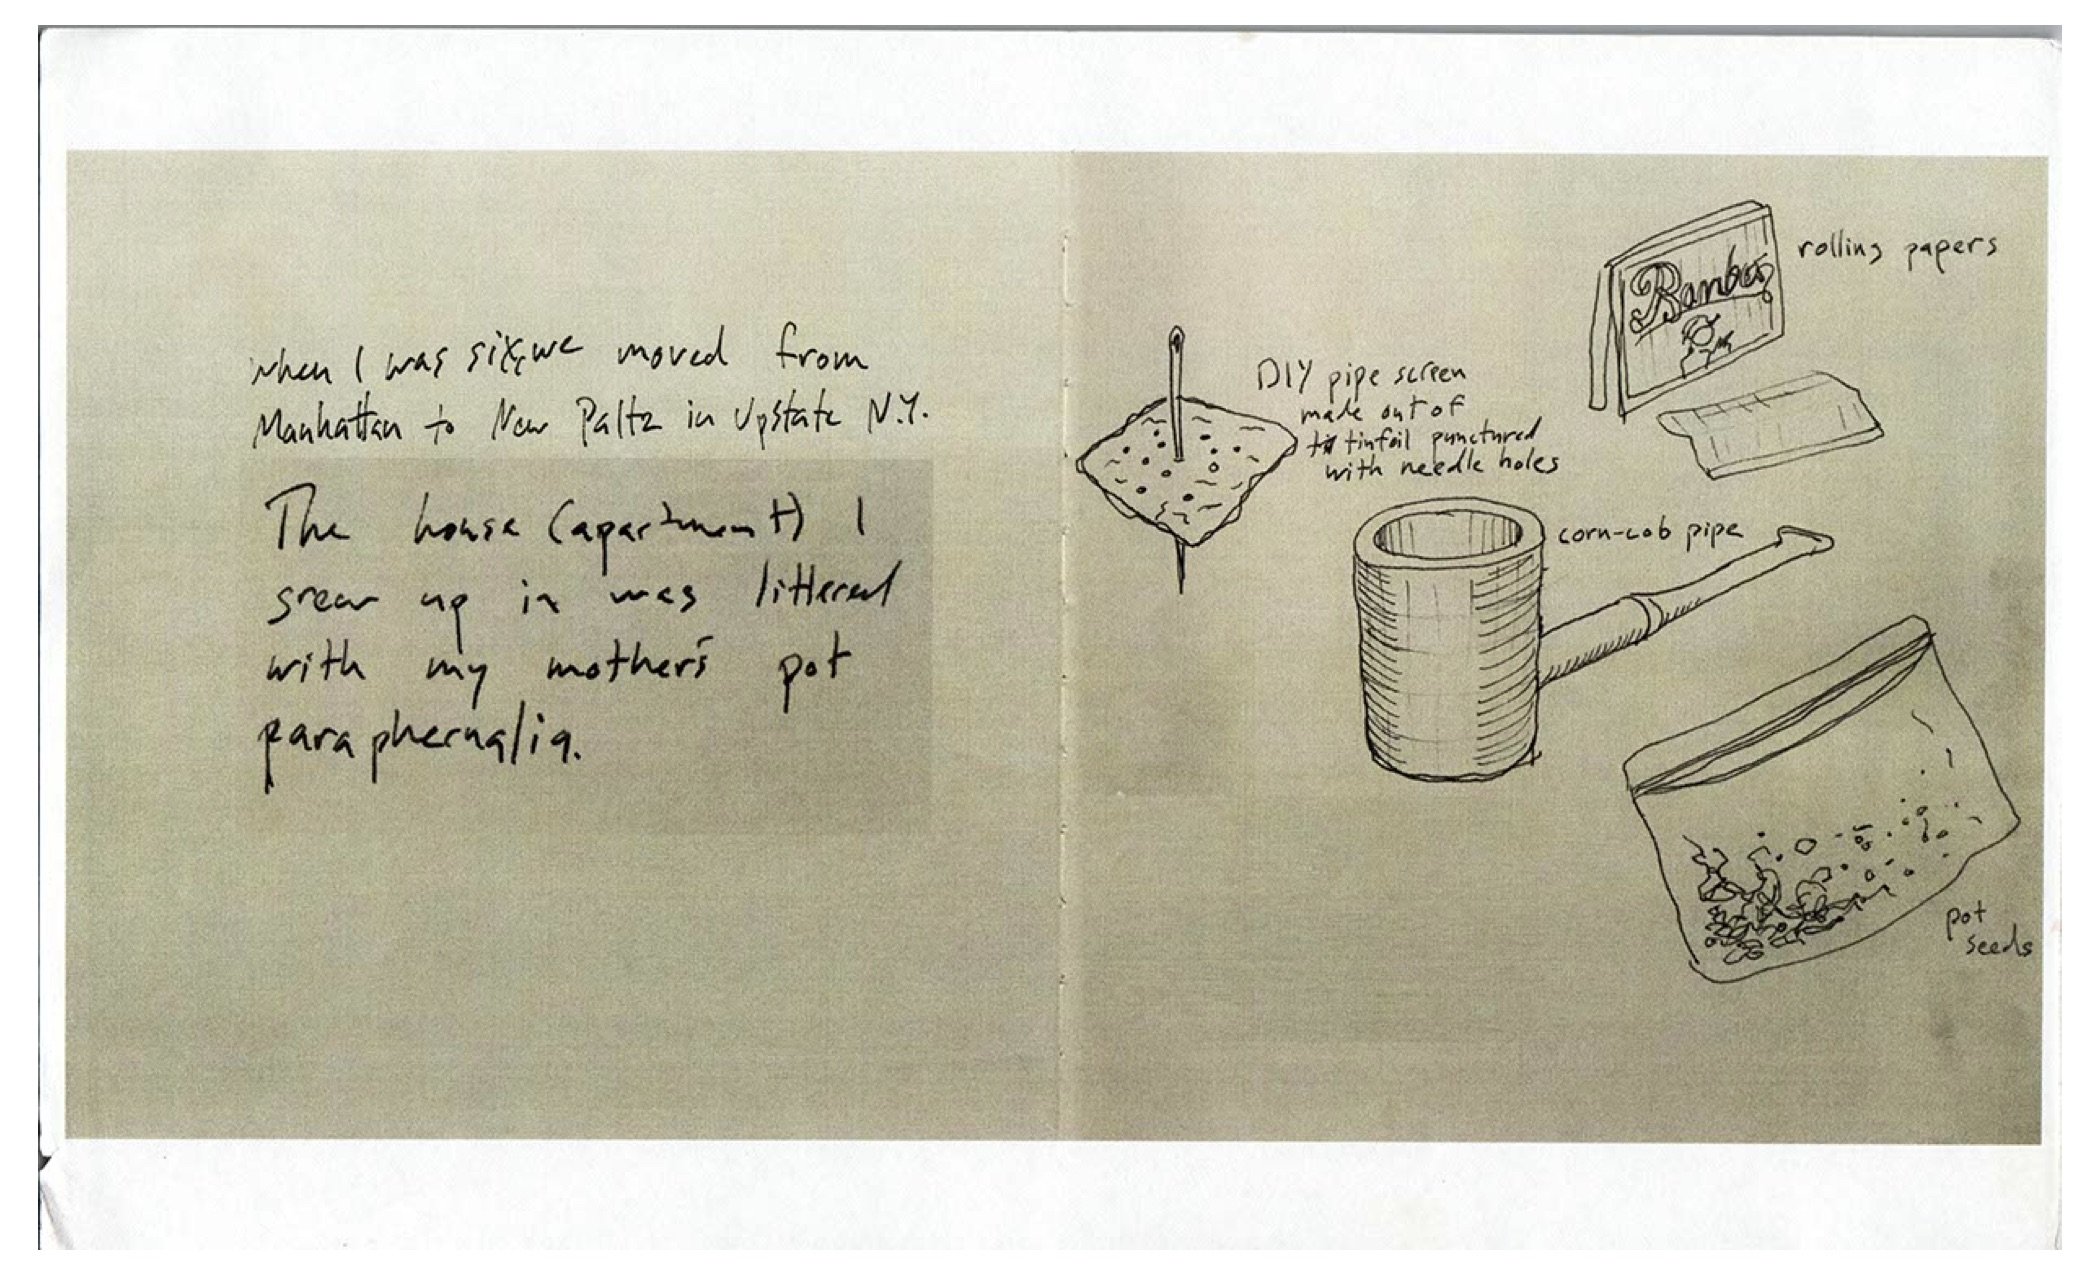 when I was six, we moved from
Manhattan to New Paltz in Upstate N.Y.
The house (apartment) I
grew up in was littered
with my mother's pot
paraphernalia.
Bambu
rolling papers
DIY pipe screen
made out of
tinfoil punctured
with needle holes
corn-cob pipe
pot
seeds